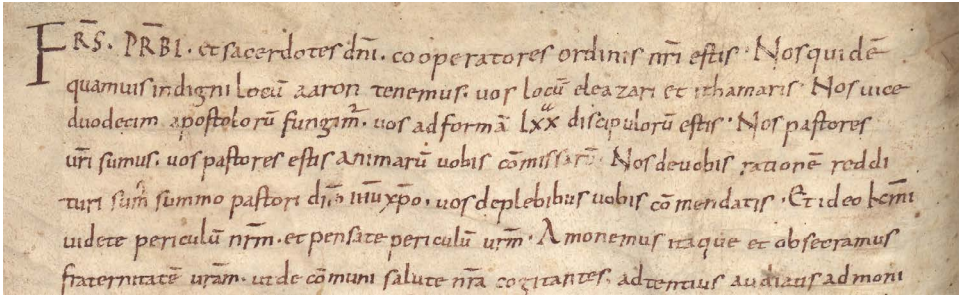 FRS̄. PRB̄I. et sacerdotes dn̄i. cooperatores ordinis nr̄i estis. Nos quidē
quamuis indigni locū aaron tenemus. uos locū eleazari et ithamaris. Nos uice
duodecim apostolorū fungimur. uos ad formā lxx discipulorū estis. Nos pastores
ur̄i sumus. uos pastores estis animarū uobis cōmissarū. Nos de uobis rationē reddi
turi sum̄ summo pastori dn̄o ih̄u xp̄o. uos de plebibus uobis cōmendatis. Et ideo kr̄mi
uidete periculū nr̄m. et pensate periculū ur̄m. Amonemus itaque et obsecramus
fraternitatē ur̄am. ut de cōmuni salute nr̄a cogitantes, adtentius audiatis admoni